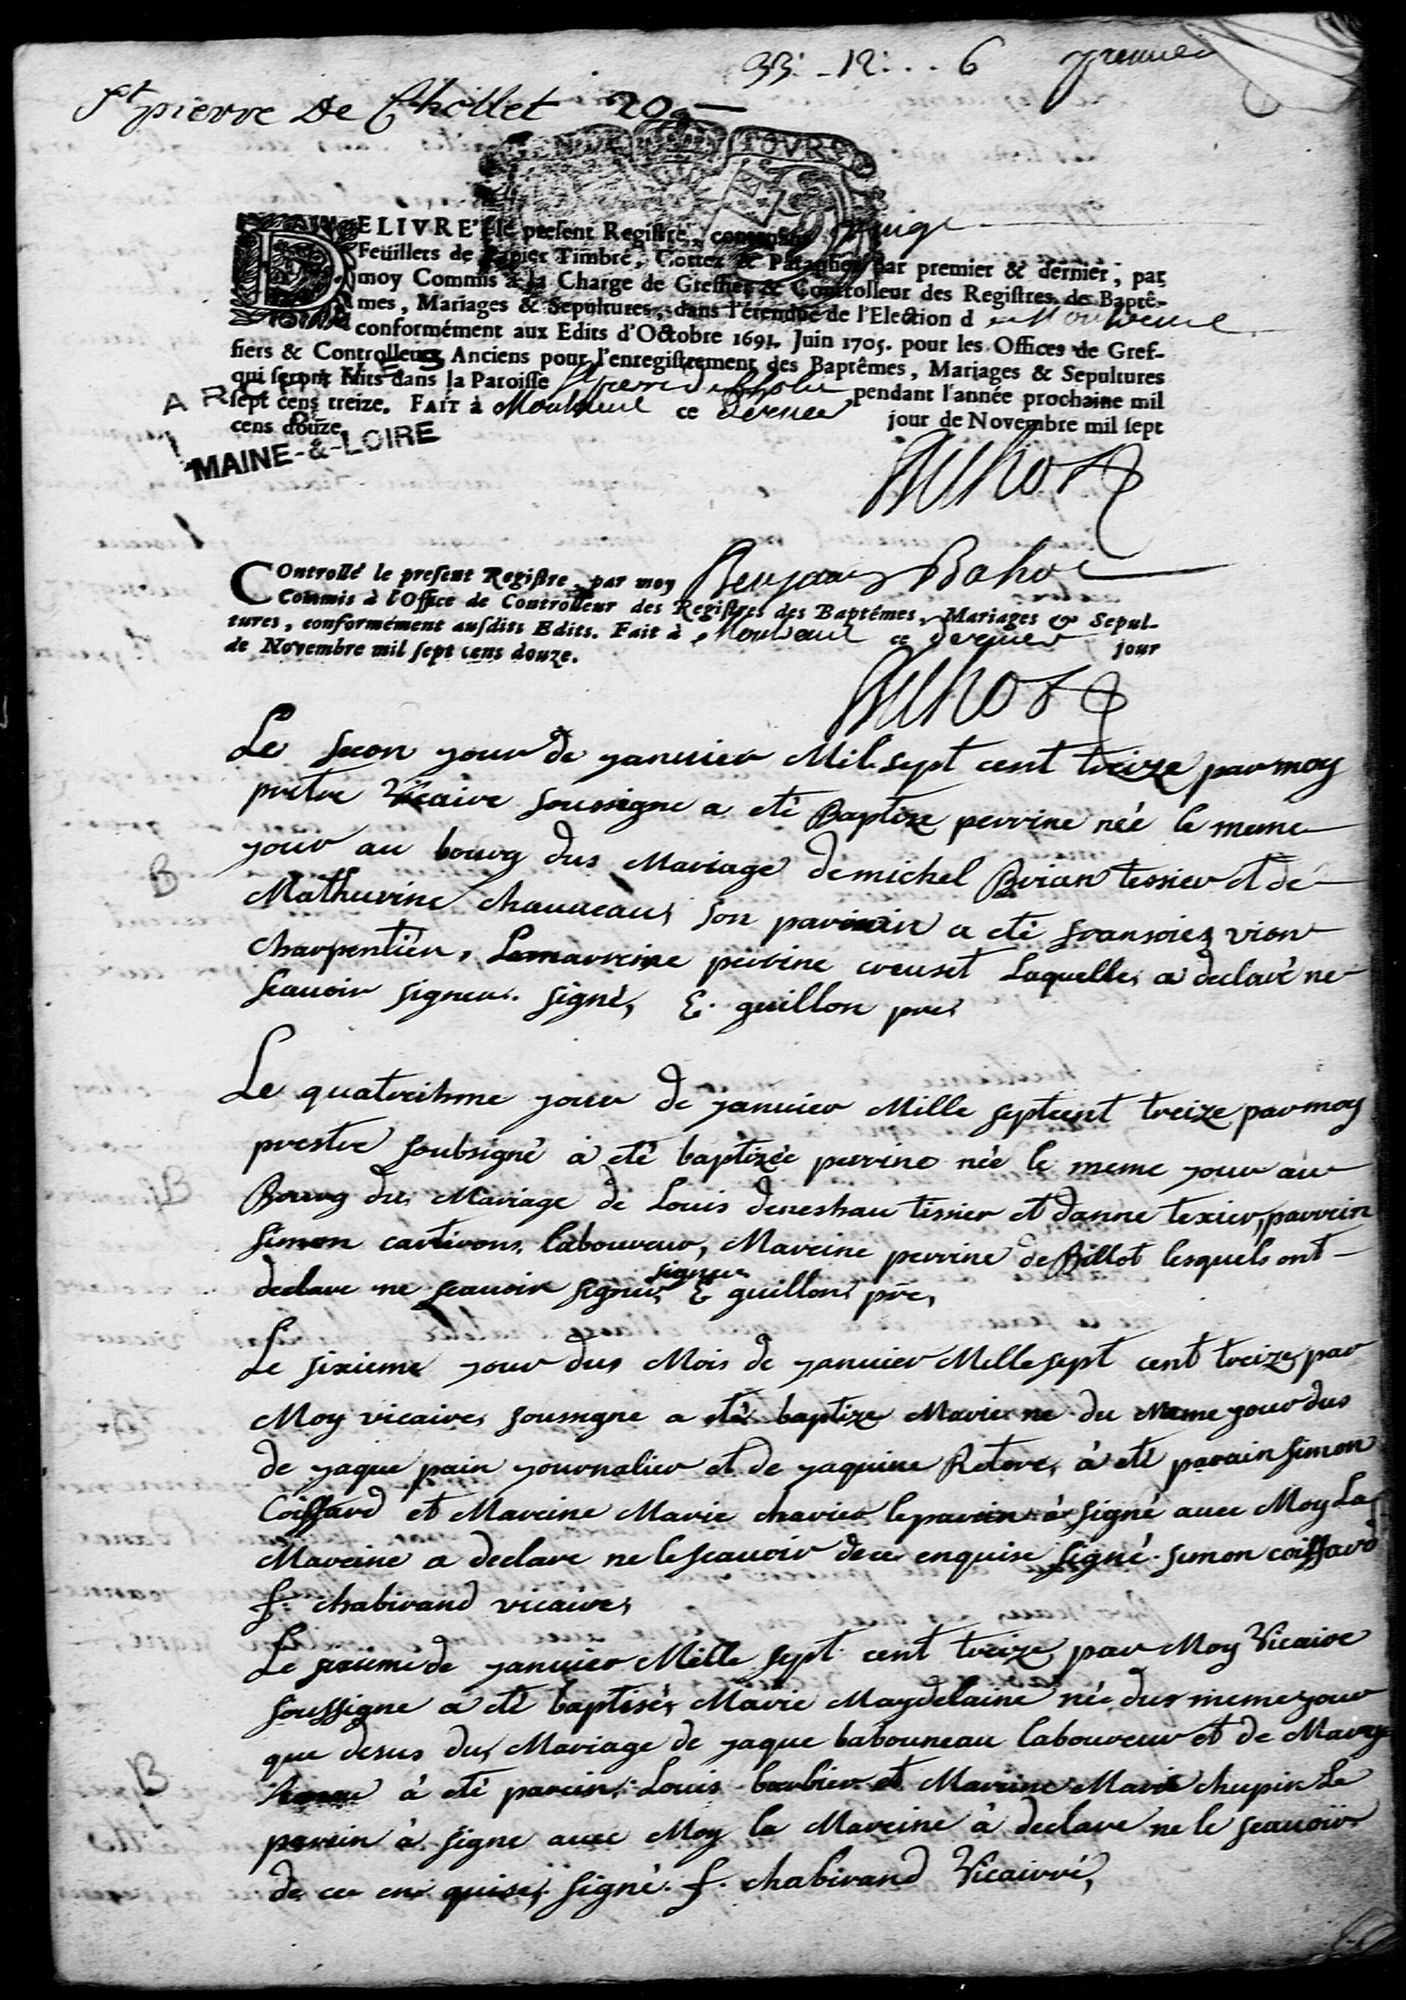 33: - 12: . . 6 premier
St pierre De Chollet 20
GEN DE TOVRS
DELIVRÉ le present Registre, contenant vingt
Feüillets de Papier Timbré, Cottez & Paraphez par premier & dernier, par
moy Commis à la Charge de Greffier & Controlleur des Registres de Baptê-
mes, Mariages & Sepultures, dans l'étenduë de l'Election d
conformément aux Edits d'Octobre 1691. Juin 1705. pour les Offices de Gref-
fiers & Controlleurs Anciens pour l'enregistrement des Baptêmes, Mariages & Sepultures
qui seront faits dans la Paroisse St pierre de Cholet pendant l'année prochaine mil
sept cens treize. FAIT à ce dernier jour de Novembre mil sept
cens douze.
MAINE-&-LOIRE
COntrollé le present Registre, par moy Benjamin
Commis à l'Office de Controlleur des Registres des Baptémes, Mariages & Sepul-
tures, conformément ausdits Edits. Fait à ce dernier jour
de Novembre mil sept cens douze.
Le secon jour de janvier Mil sept cent treize par moy
pretre Vicaire soussigne a eté Baptize perrine née le meme
jour au bourg dus Mariage de michel Brian tessier et de
B
Mathurine chauveau, son parain a eté fransoies vion
charpentier, Lamarreine perrine creuset Laquelle a declaré ne
scauoir signer. signé, E. guillon pre
Le quatreihme jour de janvier Mille septcent treize par moy
prestre soubsigné à eté baptizée perrine née le meme jour au
B
Bourg du Mariage de Louis deneshau tissier et danne texier, parrein
simon cartirons, laboureur, Mareine perrine de Billot lesquels ont
declare ne scauoir signer, signe E guillon pre,
Le sixieme jour dus Mois de janvier Mille sept cent treize par
Moy vicaire soussigne a eté baptize Marie ne du Meme jour dus
de jaque pain journalier et de jaquine Retore, à eté parain simon
Coiffard et Mareine Marie charier le parein à signé avec Moy La
Mareine a declare ne le scauoir de ce enquise signé. simon coiffard
f. chabirand vicaire
Le sixime de janvier Mille sept cent treize par Moy Vicaire
soussigne a eté baptisée Marie Magdelaine née dus meme jour
que desus du Mariage de jaque babouneau laboureur et de Marye
B
à eté parein Louis barbier et Mareine Marie chupin Le
parein à signe avec Moy la Mareine à declare ne le scauoir
de ce enquise, signé. f. chabirand Vicairré,